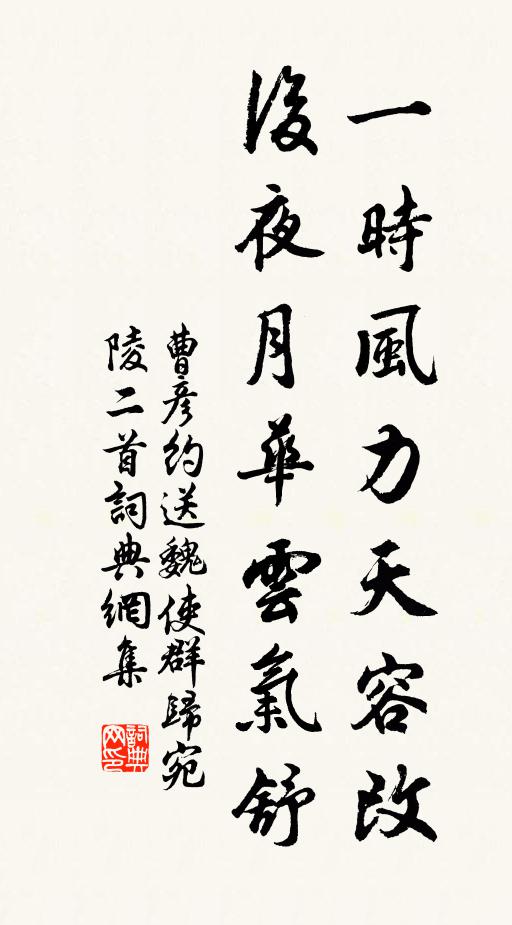 一時風力天容改
後夜月華雲氣舒
曹彥約送魏使群歸宛
陵二首詞典網集
詞典网印